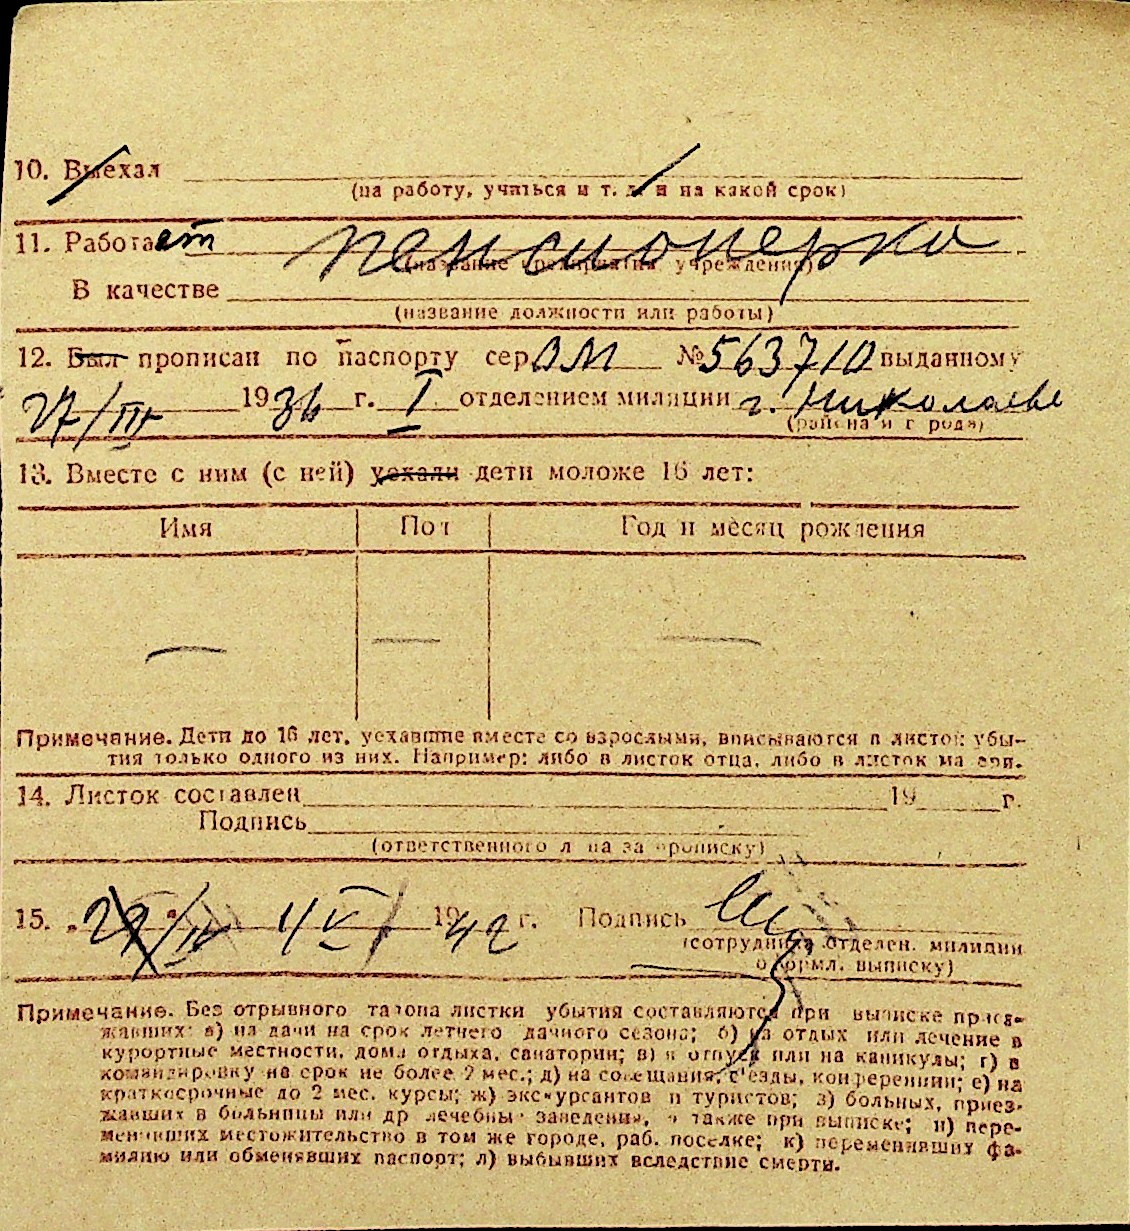 10. Выехал
(на работу, учиться и т. д. и на какой срок)
11. Работает пенсионерка
(название предприятия учреждения)
В качестве
(название должности или работы)
12. Был прописан по паспорту сер. ОМ №563710 выданному
27/III 1936 г. I отделением милиции г. Николаеве
(района и города)
13. Вместе с ним (с ней) уехали дети моложе 16 лет:
Имя Пол Год и месяц рождения
— — —
Примечание. Дети до 16 лет, уехавшие вместе со взрослыми, вписываются в листок убы-
тия только одного из них. Например: либо в листок отца, либо в листок матери.
14. Листок составлен 19 г.
Подпись
(ответственного лица за прописку)
15. „27"/IV 4/V 1942 г. Подпись
(сотрудника отделен. милиции
оформл. выписку)
Примечание. Без отрывного талона листки убытия составляются при выписке приез-
жавших: а) на дачи на срок летнего дачного сезона; б) на отдых или лечение в
курортные местности, дома отдыха, санатории; в) в отпуск или на каникулы; г) в
командировку на срок не более 2 мес.; д) на совещания, с'езды, конференции; е) на
краткосрочные до 2 мес. курсы; ж) экскурсантов и туристов; з) больных, приез-
жавших в больницы или др лечебны заведения, а также при выписке; и) пере-
менивших местожительство в том же городе, раб. поселке; к) переменивших фа-
милию или обменявших паспорт; л) выбывших вследствие смерти.